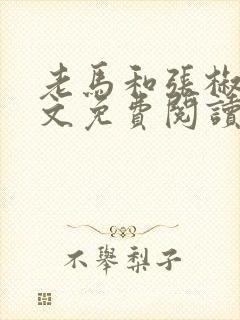 老馬和張椒
文免費閱讀
不舉梨子